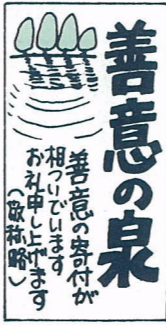 善意の泉
善意の寄付が
相ついでいます
お礼申し上げます
（敬称略）